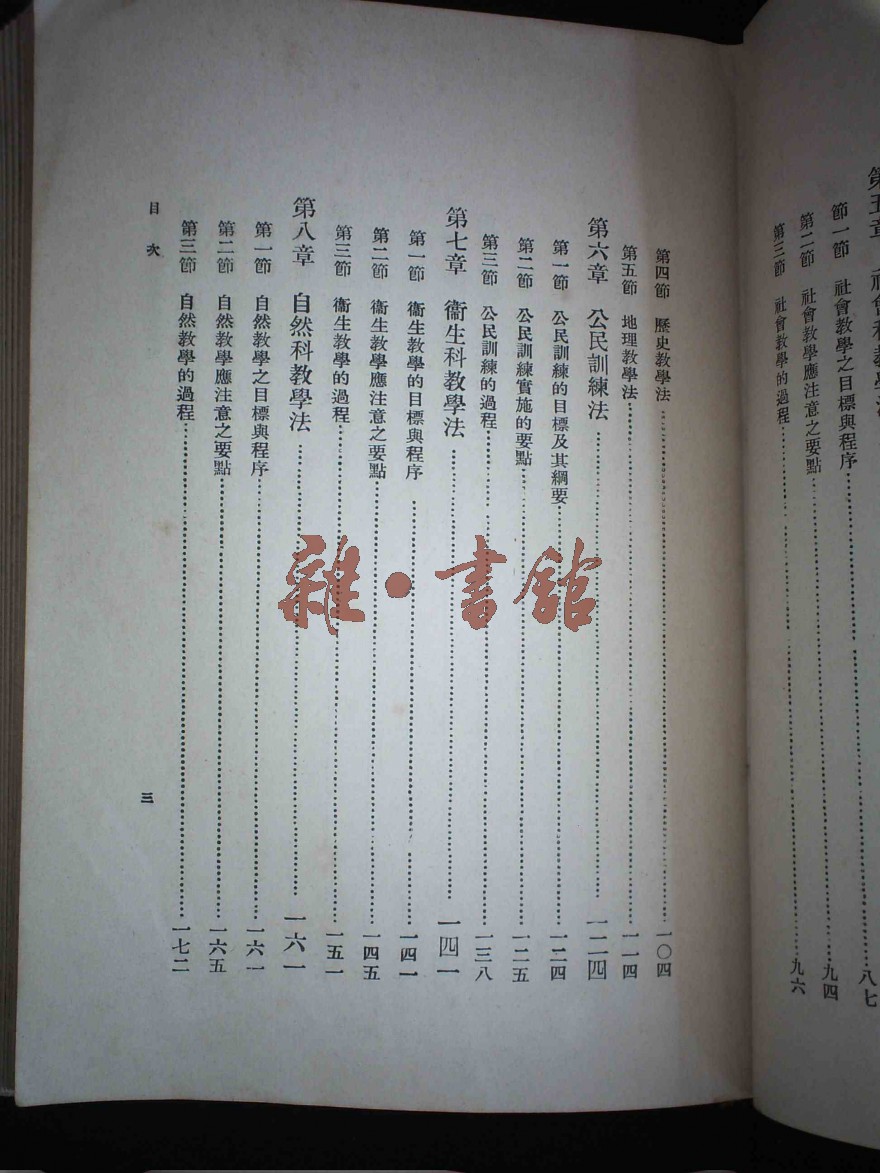 第五章 社會科教學法
節一節 社會教學之目標與程序……八七
第二節 社會教學應注意之要點……九四
第三節 社會教學的過程……九六
第四節 歷史教學法……一〇四
第五節 地理教學法……一一四
第六章 公民訓練法……一二四
第一節 公民訓練的目標及其綱要……一二四
第二節 公民訓練實施的要點……一二五
第三節 公民訓練的過程……一三八
第七章 衞生科教學法……一四一
第一節 衞生教學的目標與程序……一四一
第二節 衞生教學應注意之要點……一四五
第三節 衞生教學的過程……一五一
第八章 自然科教學法……一六一
第一節 自然教學之目標與程序……一六一
第二節 自然教學應注意之要點……一六五
第三節 自然教學的過程……一七二
目次
三
雜·書館